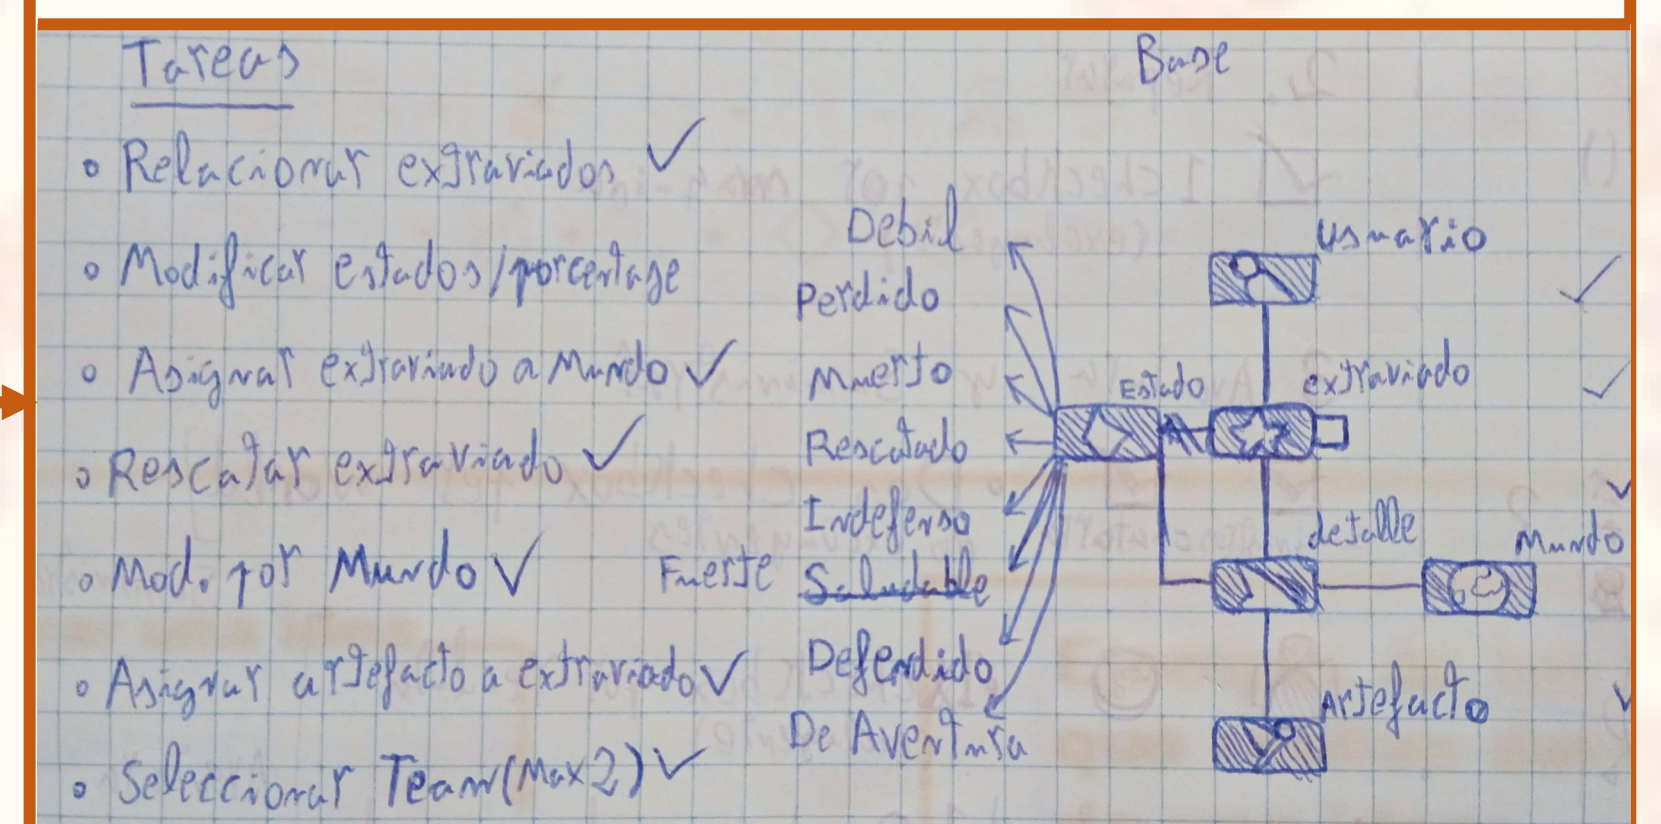 Tareas
• Relacionar extraviados ✓
• Modificar estados/porcentage
• Asignar extraviado a Mundo ✓
• Rescatar extraviado ✓
• Mod. por Mundo ✓
• Asignar artefacto a extraviado ✓
• Seleccionar Team (Max 2) ✓
Base
Debil
Perdido
Muerto
Rescatado
Indefenso
Fuerte Saludable
Defendido
De Aventura
Usuario
Estado
extraviado
detalle
Mundo
Artefacto